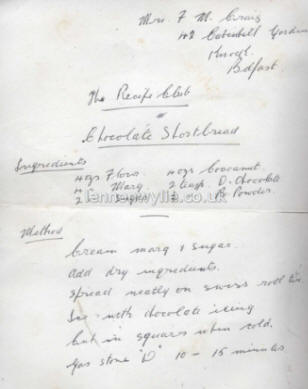 Mrs. F. M. Craig
42 Catehill Gardens
Knock,
Belfast.
The Recipe Club
Chocolate Shortbread
Ingredients
4 ozs Flour 4 ozs Cocoanut
4 " Marg 2 teasp. D. Chocolate
2 " Sugar B. Powder.
lennonwylie.co.uk
Method
Cream marg & sugar.
add dry ingredients.
spread neatly on swiss roll tin.
Ice with chocolate icing
cut in squares when cold.
Gas stove "D" 10 - 15 minutes